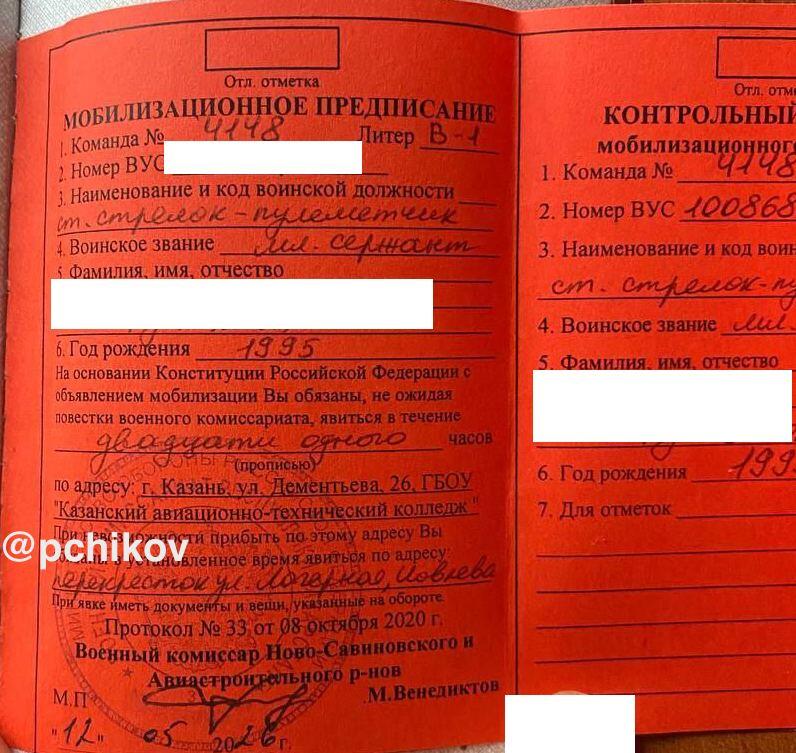 Отл. отметка
МОБИЛИЗАЦИОННОЕ ПРЕДПИСАНИЕ
1. Команда № 4148 Литер В-1
2. Номер ВУС
3. Наименование и код воинской должности
ст. стрелок-пулеметчик
4. Воинское звание мл. сержант
5 Фамилия, имя, отчество
6. Год рождения 1995
На основании Конституции Российской Федерации с
объявлением мобилизации Вы обязаны, не ожидая
повестки военного комиссариата, явиться в течение
двадцати одного часов
(прописью)
по адресу: г. Казань, ул. Дементьева, 26, ГБОУ
"Казанский авиационно-технический колледж"
При невозможности прибыть по этому адресу Вы
в установленное время явиться по адресу:
перекресток ул. Лагерная, Ловлева
При явке иметь документы и вещи, указанные на обороте.
Протокол № 33 от 08 октября 2020 г.
Военный комиссар Ново-Савиновского и
Авиастроительного р-нов
М.П М.Венедиктов
"12" 05 2026 г.
@pchikov
Отл. отм
КОНТРОЛЬНЫЙ
мобилизационног
1. Команда № 4148
2. Номер ВУС 100868
3. Наименование и код воин
ст. стрелок-пу
4. Воинское звание мл.
5. Фамилия, имя, отчество
6. Год рождения 1995
7. Для отметок